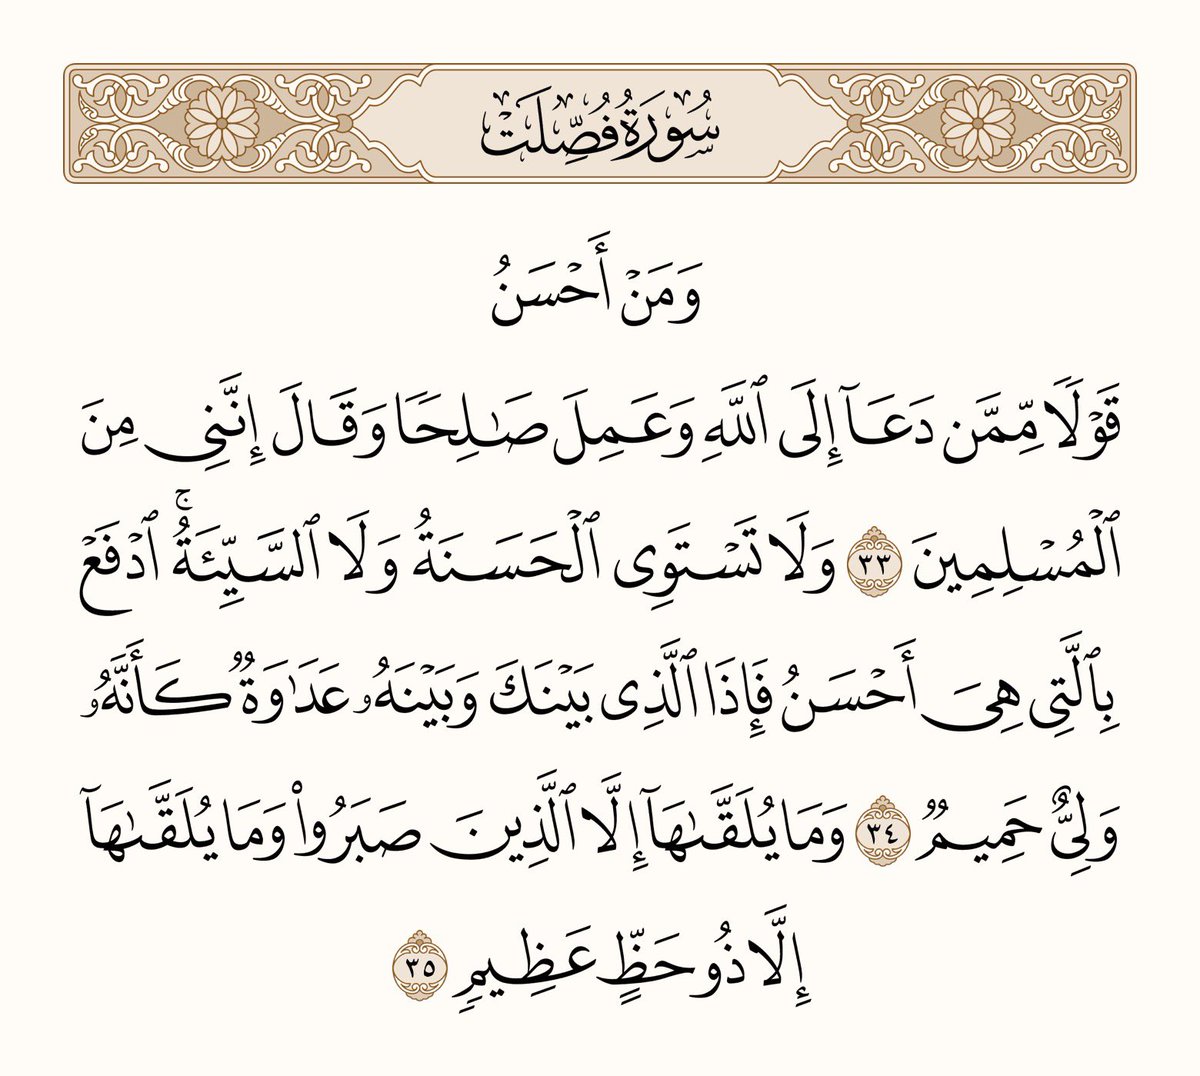 سُورَةُ فُصِّلَتْ
وَمَنْ أَحْسَنُ
قَوْلًا مِّمَّن دَعَآ إِلَى ٱللَّهِ وَعَمِلَ صَـٰلِحًا وَقَالَ إِنَّنِى مِنَ
ٱلْمُسْلِمِينَ ٣٣ وَلَا تَسْتَوِى ٱلْحَسَنَةُ وَلَا ٱلسَّيِّئَةُ ۚ ٱدْفَعْ
بِٱلَّتِى هِىَ أَحْسَنُ فَإِذَا ٱلَّذِى بَيْنَكَ وَبَيْنَهُۥ عَدَٰوَةٌ كَأَنَّهُۥ
وَلِىٌّ حَمِيمٌ ٣٤ وَمَا يُلَقَّىٰهَآ إِلَّا ٱلَّذِينَ صَبَرُوا۟ وَمَا يُلَقَّىٰهَآ
إِلَّا ذُو حَظٍّ عَظِيمٍ ٣٥